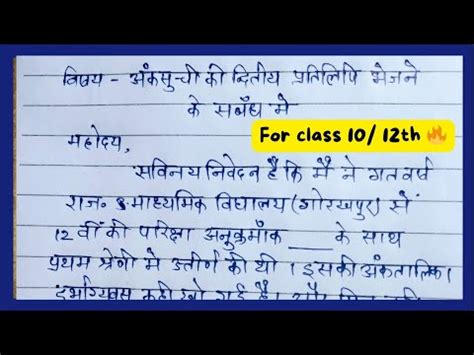 विषय - अंकसुची की द्वितीय प्रतिलिपि भेजने
के सबंध मे
For class 10/ 12th 🔥
महोदय,
सविनय निवेदन है कि मै ने गतवर्ष
राज० उ.माध्यमिक विद्यालय (गोरखपुर) से
12 वीं की परिक्षा अनुक्रमाँक ___ के साथ
प्रथम श्रेणी मे उत्तीर्ण की थी । इसकी अंकतालिका
कही खो गई है।